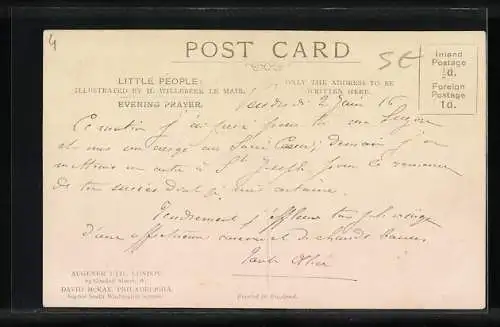 4
POST CARD
5€
Inland
Postage
½d.
Foreign
Postage
1d.
LITTLE PEOPLE:
ILLUSTRATED BY H. WILLEBEEK LE MAIR.
EVENING PRAYER.
ONLY THE ADDRESS TO BE
WRITTEN HERE.
Vendredi 2 Juin 16
Ce matin j'ai prié pour toi ma
et mis un cierge au Sacré Cœur; demain j'en
mettrai un autre à St Joseph pour le
de ton succès dont je suis certaine.
Tendrement j'effleure ton joli visage
d'une affectueuse de chauds baisers
AUGENER LTD. LONDON.
DAVID McKAY, PHILADELPHIA.
604-608 South Washington Square.
Printed in England.